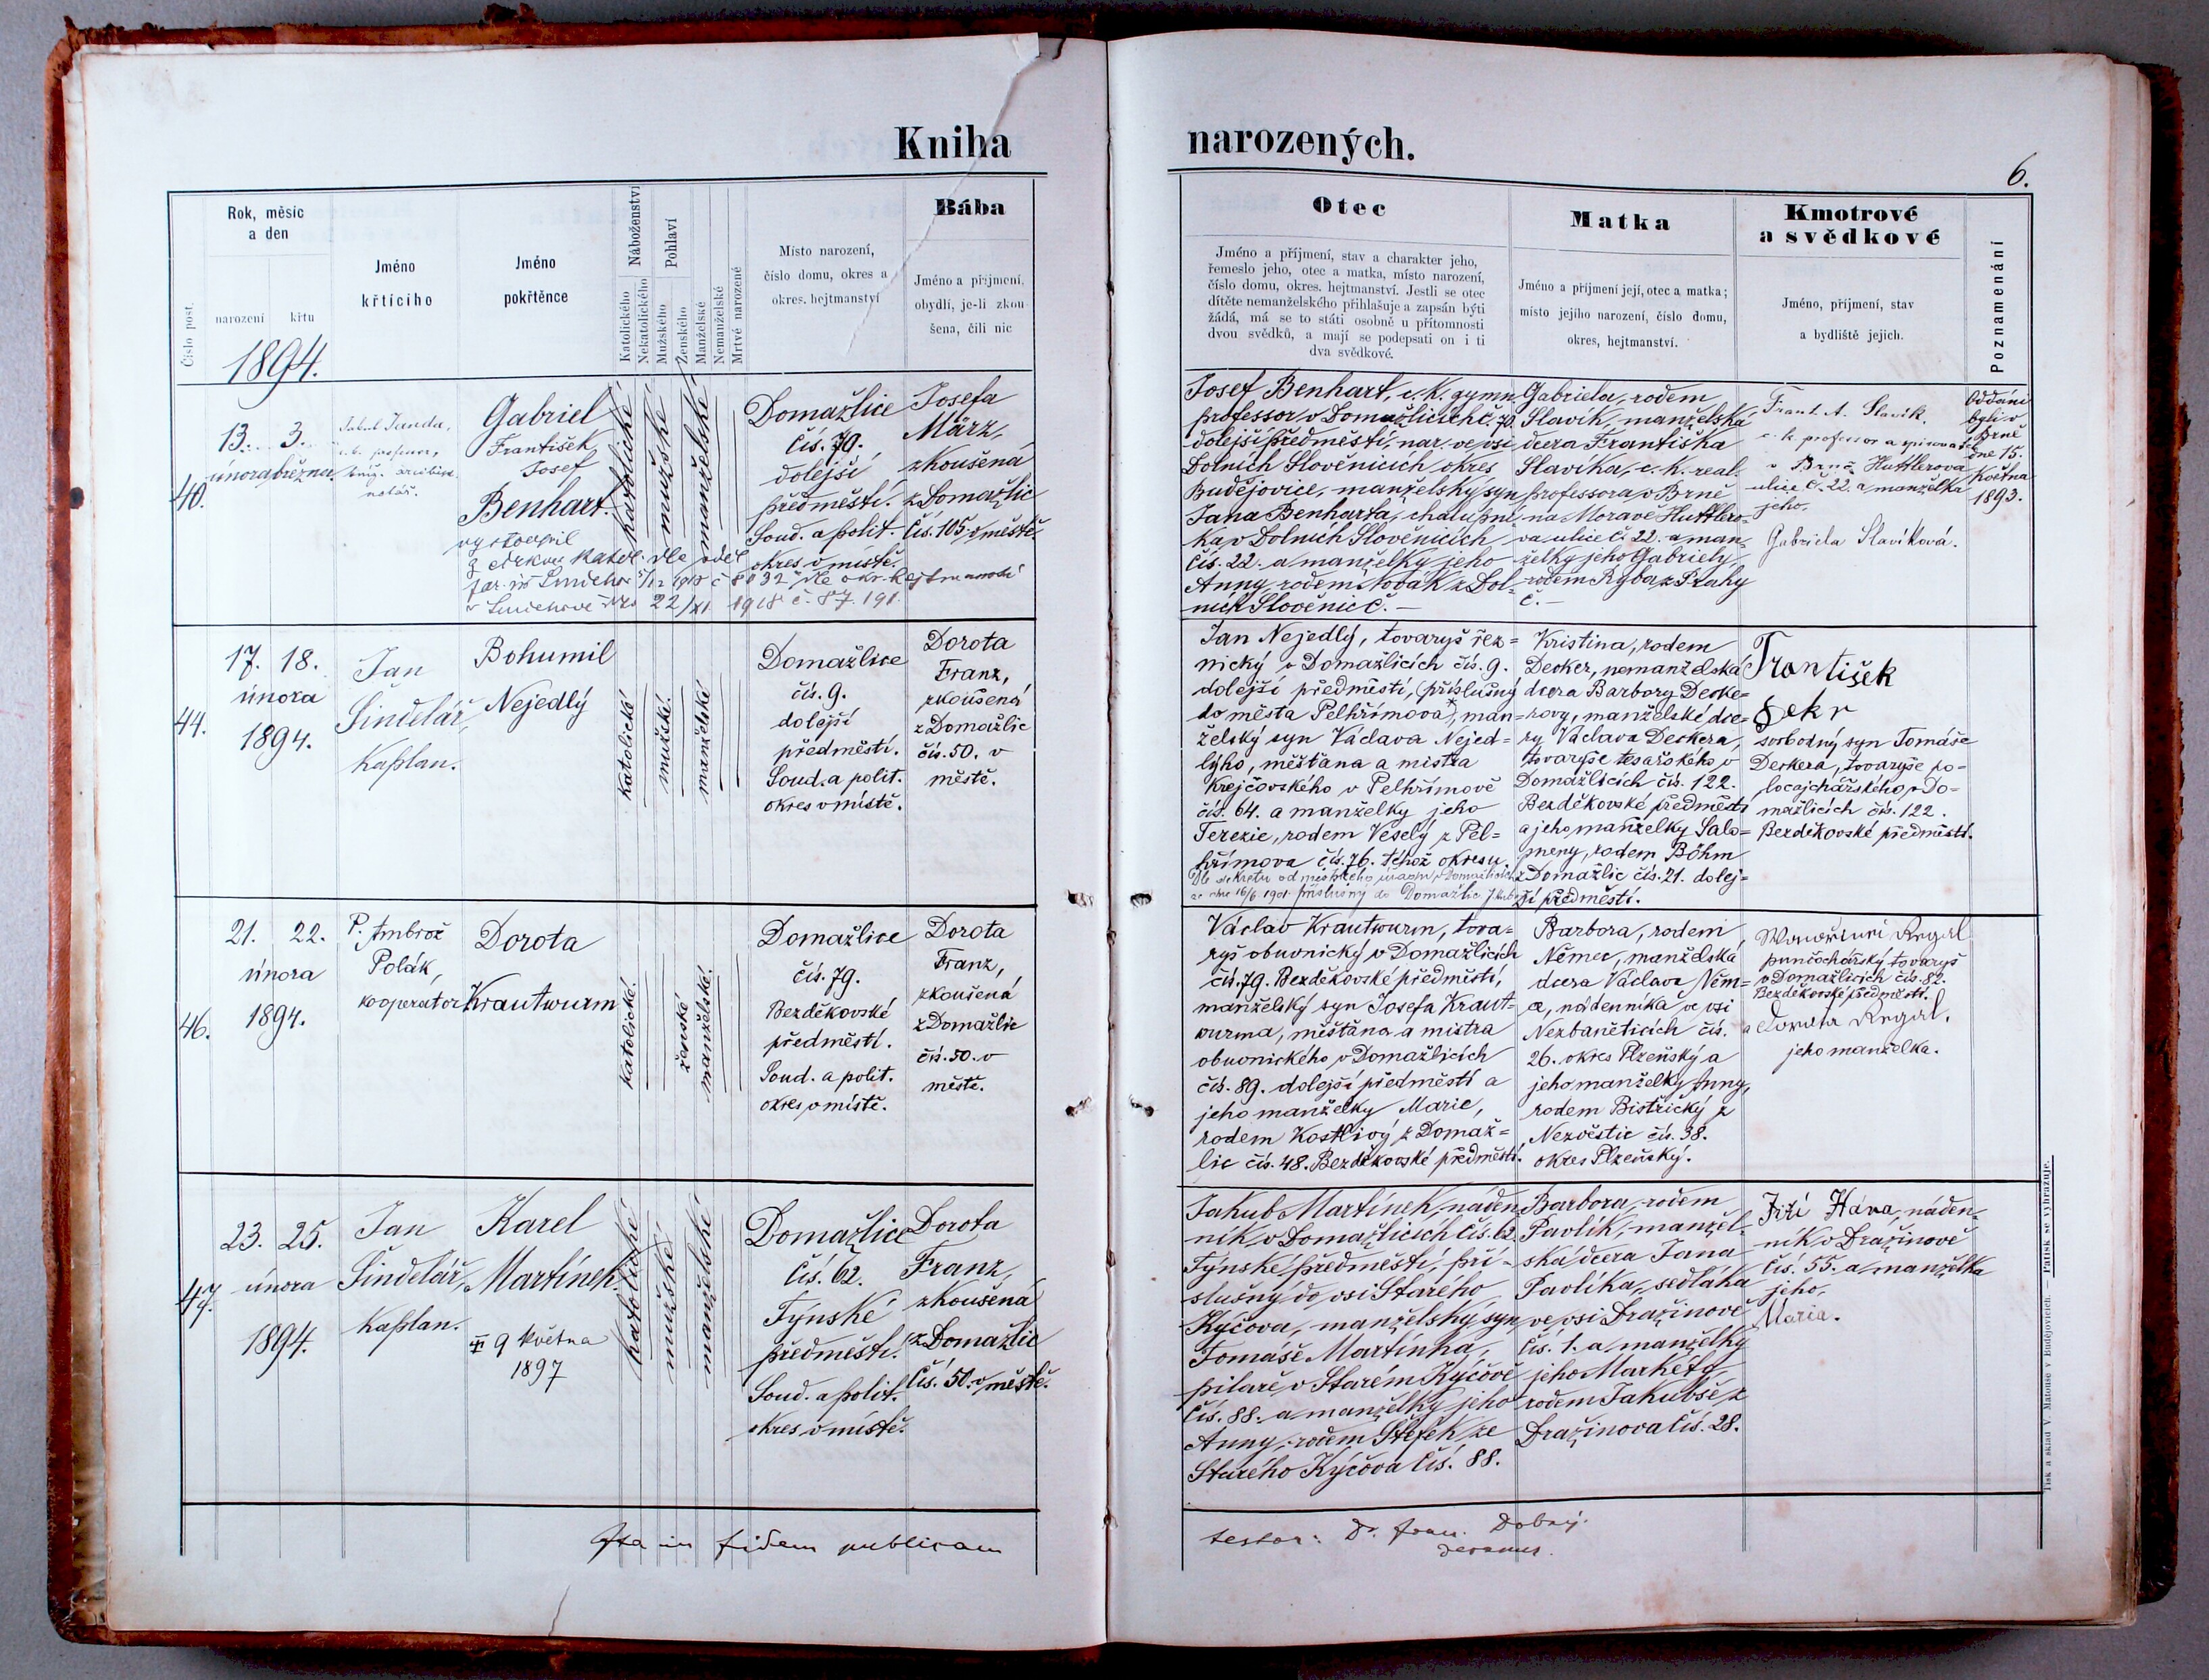 Kniha
narozených.
6.
Číslo post.
Rok, měsíc
a den
narození
křtu
1894.
Jméno
křtícího
Jméno
pokřtěnce
Náboženství
Katolického
Nekatolického
Pohlaví
Mužského
Ženského
Manželské
Nemanželské
Mrtvě narozené
Místo narození,
číslo domu, okres a
okres. hejtmanství
Bába
Jméno a příjmení,
obydlí, je-li zkou-
šena, čili nic
Otec
Jméno a příjmení, stav a charakter jeho,
řemeslo jeho, otec a matka, místo narození,
číslo domu, okres. hejtmanství. Jestli se otec
dítěte nemanželského přihlašuje a zapsán býti
žádá, má se to státi osobně u přítomnosti
dvou svědků, a mají se podepsati on i ti
dva svědkové.
Matka
Jméno a příjmení její, otec a matka;
místo jejího narození, číslo domu,
okres, hejtmanství.
Kmotrové
a svědkové
Jméno, příjmení, stav
a bydliště jejich.
Poznamenání
40.
13. 3.
února března
Jakub Janda,
c. k. professor,
notář.
Gabriel
František
Josef
Benhart.
vystoupil
z církve katol. dle
22/XI 1918 č. 87.191.
katolické
mužské
manželské
Domažlice
čís. 79.
dolejší
předměstí.
Soud. a polit.
okres v místě.
Josefa
März,
zkoušená
z Domažlic
čís. 105 v městě.
Josef Benhart, c. k. gymn.
professor v Domažlicích č. 79
dolejší předměstí, nar. ve vsi
Dolních Slověnicích okres
Budějovice, manželský syn
Jana Benharta, chalupní-
ka v Dolních Slověnicích
čís. 22. a manželky jeho
Anny rodem Novák z Dol-
ních Slověnic č. —
Gabriela, rodem
Slavík, manželská
dcera Františka
Slavíka, c. k. real.
professora v Brně
na Moravě Huttlero-
va ulice č. 22. a man-
želky jeho Gabriely,
rodem Ryba z Prahy
č. —
Frant. A. Slavík,
c. k. professor a
v Brně Huttlerova
ulice č. 22. a manželka
jeho,
Gabriela Slavíková.
Oddáni
byli v
Brně
dne 15.
Května
1893.
44.
17. 18.
února
1894.
Jan
Šindelář,
Kaplan.
Bohumil
Nejedlý
katolické
mužské
manželské
Domažlice
čís. 9.
dolejší
předměstí.
Soud. a polit.
okres v místě.
Dorota
Franz,
zkoušená
z Domažlic
čís. 50. v
městě.
Jan Nejedlý, tovaryš řez-
nický v Domažlicích čís. 9.
dolejší předměstí, (příslušný
do města Pelhřimova*), man-
želský syn Václava Nejed-
lýho, měštana a mistra
krejčovského v Pelhřimově
čís. 64. a manželky jeho
Terezie, rodem Veselý z Pel-
hřimova čís. 76. téhož okresu.
Dle dekretu od městského úřadu v Domažlicích
ze dne 16/6 1901 příslušný do Domažlic
Kristina, rodem
Decker, nemanželská
dcera Barbory Decke-
rovy, manželské dce-
ry Václava Deckera,
tovaryše tesařského v
Domažlicích čís. 122.
Bezděkovské předměstí
a jeho manželky Salo-
meny, rodem Böhm
z Domažlic čís. 21. dolej-
ší předměstí.
František
Dekr
svobodný syn Tomáše
Deckera, tovaryše po-
mažlicích čís. 122.
Bezděkovské předměstí.
46.
21. 22.
února
1894.
P. Ambrož
Polák,
kooperator
Dorota
Krautwurm
katolické.
ženské
manželské.
Domažlice
čís. 79.
Bezděkovské
předměstí.
Soud. a polit.
okres v místě.
Dorota
Franz,
zkoušená
z Domažlic
čís. 50. v
městě.
Václav Krautwurm, tova-
ryš obuvnický v Domažlicích
čís. 79. Bezděkovské předměstí,
manželský syn Josefa Kraut-
wurma, měštana a mistra
obuvnického v Domažlicích
čís. 89. dolejší předměstí a
jeho manželky Marie,
rodem Kostlivý z Domaž-
lic čís. 48. Bezděkovské předměstí.
Barbora, rodem
Němec, manželská
dcera Václava Něm-
ce, nádenníka ve vsi
Nezbavěticích čís.
26. okres Plzeňský a
jeho manželky Anny,
rodem Bistřický z
Nezvěstic čís. 38.
okres Plzeňský.
punčochářský tovaryš
v Domažlicích čís. 82.
Bezděkovské předměstí.
a Dorota
jeho manželka.
47.
23. 25.
února
1894.
Jan
Šindelář,
Kaplan.
Karel
Martínek.
9 května
1897
katolické
mužské
manželské
Domažlice
čís. 62.
Týnské
předměstí.
Soud. a polit.
okres v místě.
Dorota
Franz,
zkoušená
z Domažlic
čís. 50. v městě.
Jakub Martínek, náden-
ník v Domažlicích čís. 62.
Týnské předměstí, pří-
slušný do vsi Starého
Kýčova, manželský syn
Tomáše Martínka,
pilaře v Starém Kýčově
čís. 88. a manželky jeho
Anny, rodem Štefek ze
Starého Kýčova čís. 88.
Barbora, rodem
Pavlík, manžel-
ská dcera Jana
Pavlíka, sedláka
ve vsi Dražinově
čís. 1. a manželky
jeho Markéty
rodem Jakubše z
Dražinova čís. 28.
Jiří Hána, náden-
ník v Dražinově
čís. 55. a manželka
jeho,
Maria.
Ita in fidem publicam
testor: Dr. Fran. Dobrý.
decanus.
Tisk a sklad V. Matouše v Budějovicích. — Patisk se vyhrazuje.